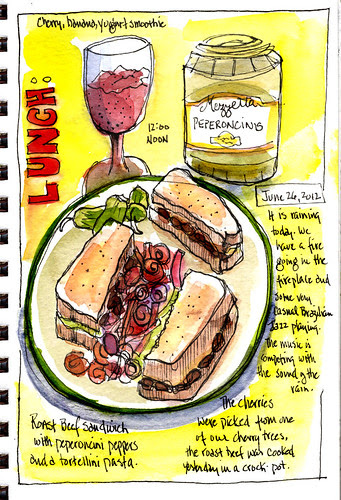 Cherry, banana, yogurt smoothie
LUNCH:
12:00
NOON
Mezzetta
PEPERONCINIS
June 26, 2012
It is raining
today. We
have a fire
going in the
fireplace and
some very
casual Brazilian
Jazz playing.
The music is
competing with
the sound of the
rain.
Roast Beef Sandwich
with peperoncini peppers
and a tortellini pasta.
The cherries
were picked from one
of our cherry trees,
the roast beef was cooked
yesterday in a crock pot.